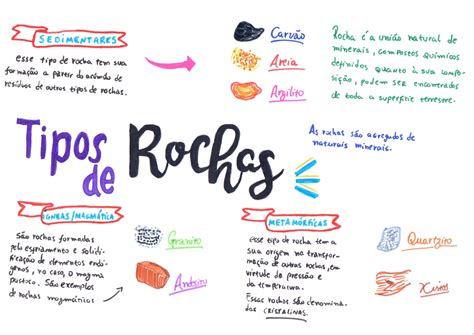 SEDIMENTARES
esse tipo de rocha tem sua
formação a partir do acúmulo de
resíduos de outros tipos de rochas.
Carvão
Areia
Argilito
Rocha é a união natural de
minerais, compostos químicos
definidos quanto à sua compo-
sição, podem ser encontrados
de toda a superfície terrestre.
Tipos
de
Rochas
As rochas são agregados de
naturais minerais.
ÍGNEAS/MAGMÁTICA
São rochas formadas
pelo esfriamento e solidi-
ficação de elementos endó-
genos, no caso, o magma
pastoso. São exemplos
de rochas magmáticas
Granito
Andesito
METAMÓRFICAS
esse tipo de rocha tem a
sua origem na transfor-
mação de outras rochas, em
virtude da pressão e
da temperatura.
Essas rochas são denomina
das CRISTALINAS.
Quartzito
Xisto